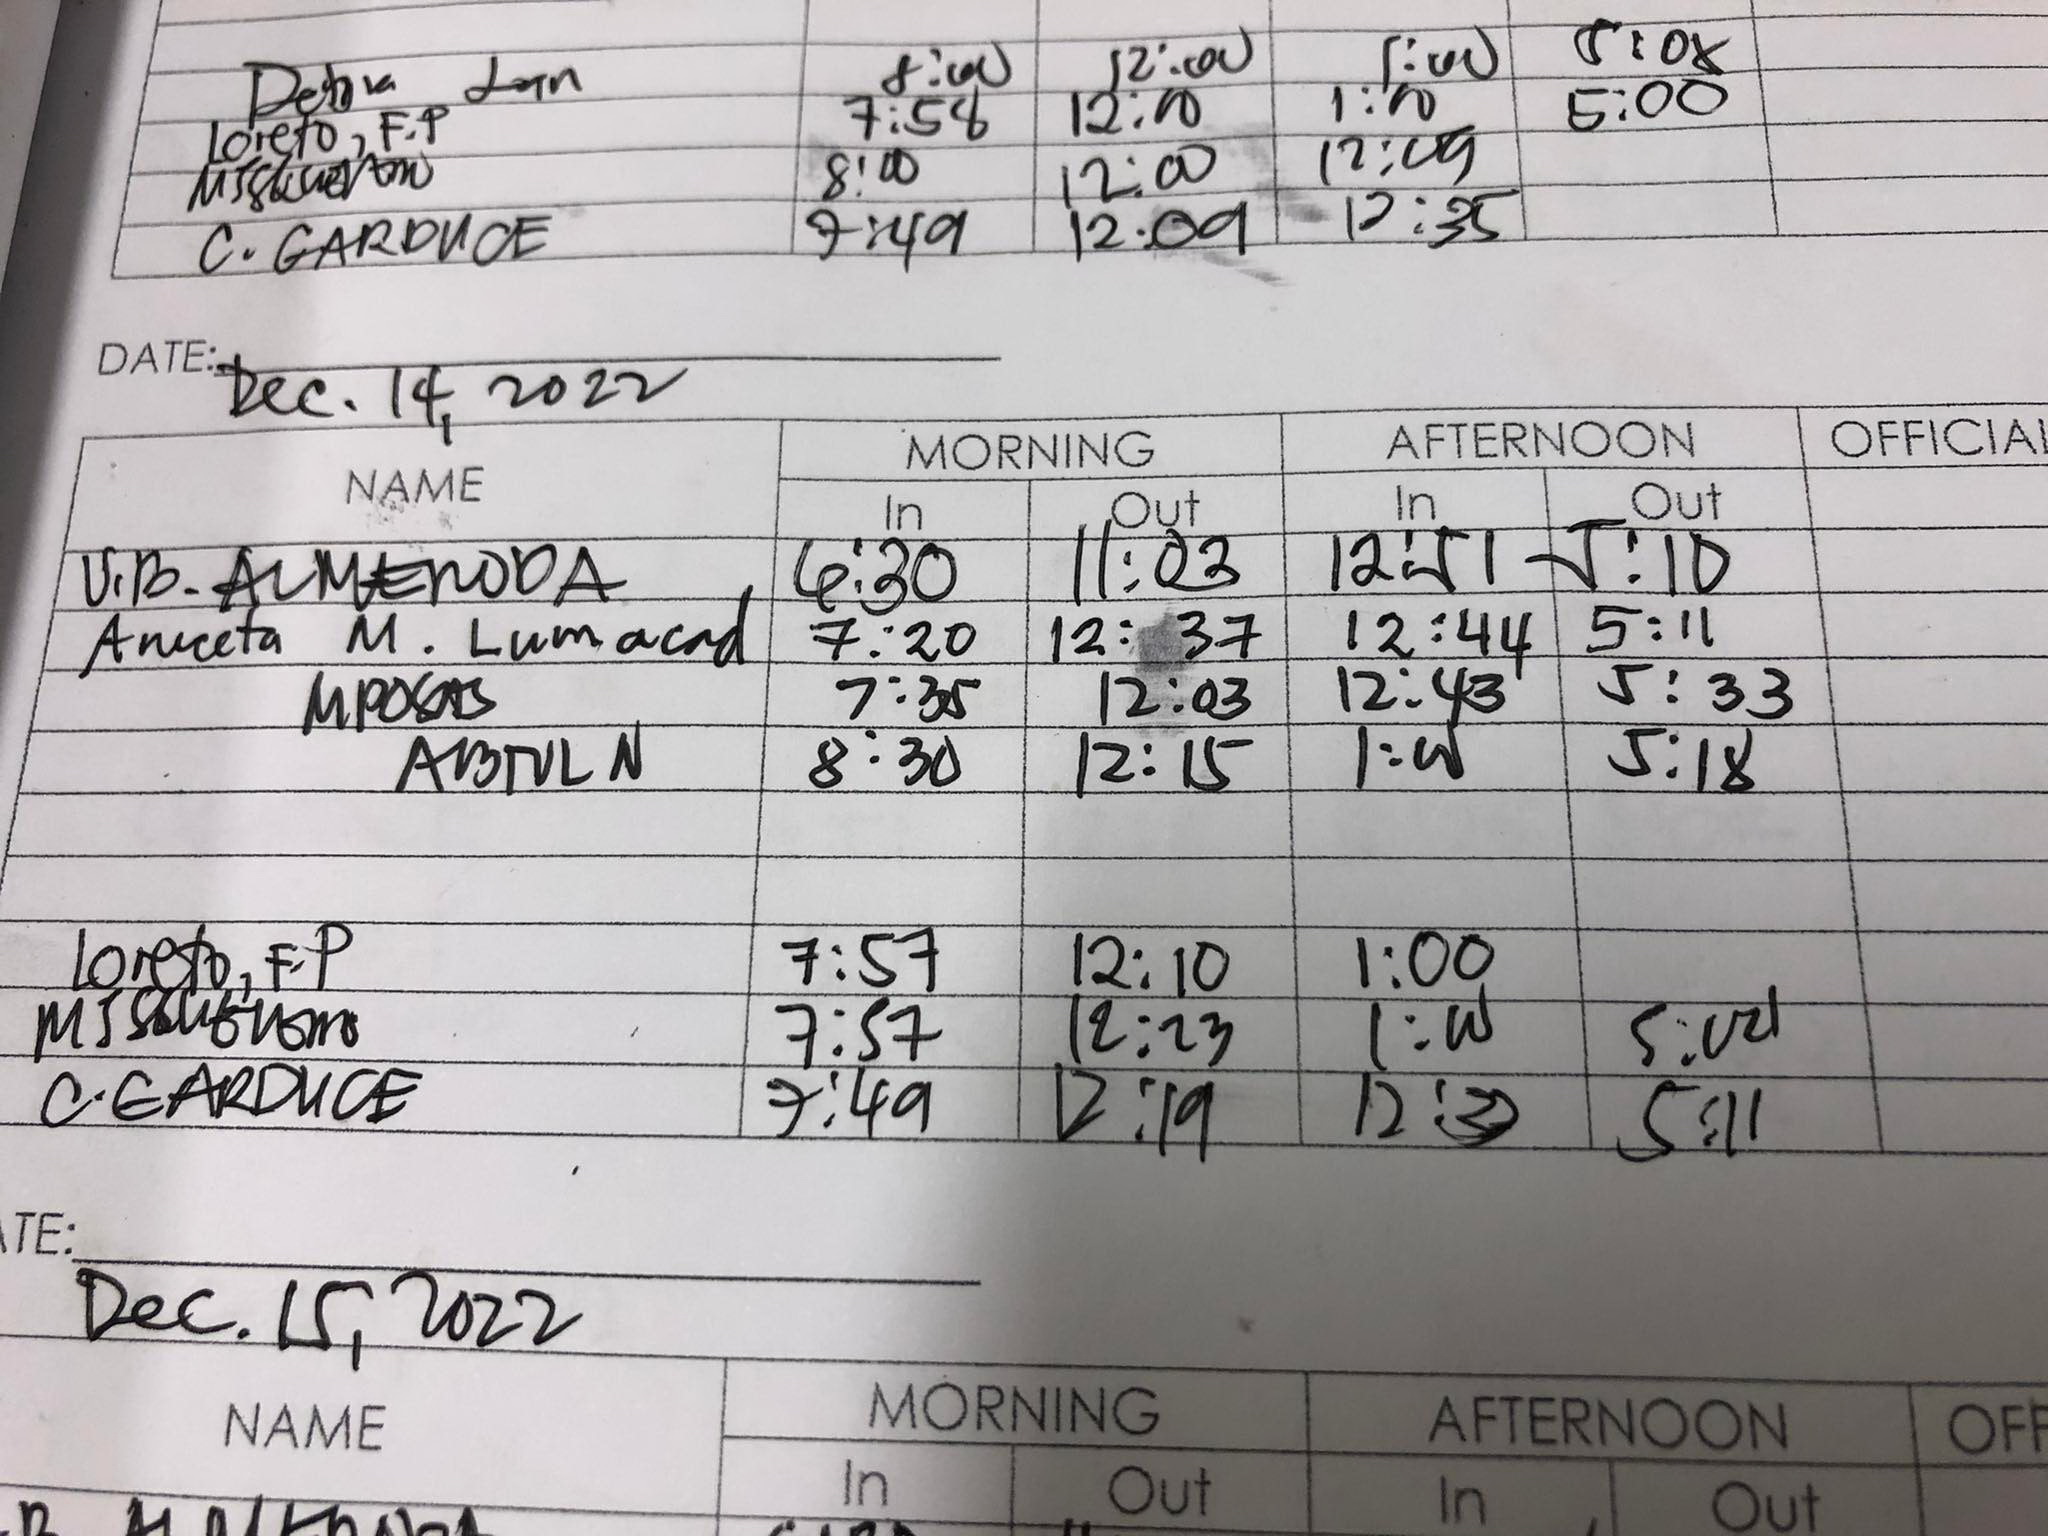 8:00 12:00 1:00 5:08
Loreto, F.P 7:58 12:10 1:00 5:00
8:00 12:00 12:09
C. GARDUCE 7:49 12:09 12:35
DATE: Dec. 14, 2022
NAME MORNING AFTERNOON OFFICIAL
In Out In Out
V.B. ALMENODA 6:30 11:03 12:51 5:10
Aniceta M. Lumacad 7:20 12:37 12:44 5:11
7:35 12:03 12:43 5:33
8:30 12:15 1:00 5:18
Loreto, F.P 7:57 12:10 1:00
7:57 12:23 1:00
C. GARDUCE 7:49 12:19 5:11
ATE: Dec. 15, 2022
NAME MORNING AFTERNOON OFF
In Out In Out